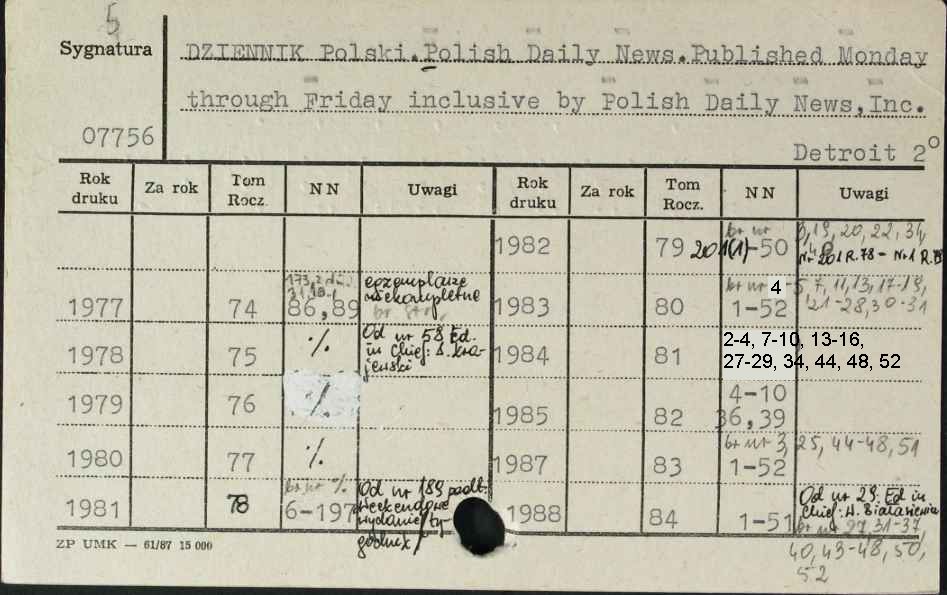 5
Sygnatura
07756
DZIENNIK Polski.Polish Daily News.Published Monday
through Friday inclusive by Polish Daily News,Inc.
Detroit 2°
Rok druku Za rok Tom Rocz. NN Uwagi Rok druku Za rok Tom Rocz. NN Uwagi
br nr 19, 20, 22, 34,
1982 79 201(1)-50
Nr 201 R.78 - Nr 1 R.
1977 74 86,89 egzemplarze niekompletne
br nr 4-5 7, 11, 13, 17-19,
1983 80 1-52 21-28, 30-31
1978 75 % Od nr 58 Ed. in Chief: S. Kra-jewski
1984 81 2-4, 7-10, 13-16,
27-29, 34, 44, 48, 52
1979 76 %
4-10
1985 82 36,39
1980 77 %
br nr 3, 25, 44-48, 51
1987 83 1-52
br nr %
1981 78 6-197 Od nr 189 weekendowe wydanie/ty-godnik/
1988 84 1-51 Od nr 29 Ed in Chief: H. Białasiewicz
br nr 27, 31-37,
40, 43-48, 50,
52
ZP UMK — 61/87 15 000